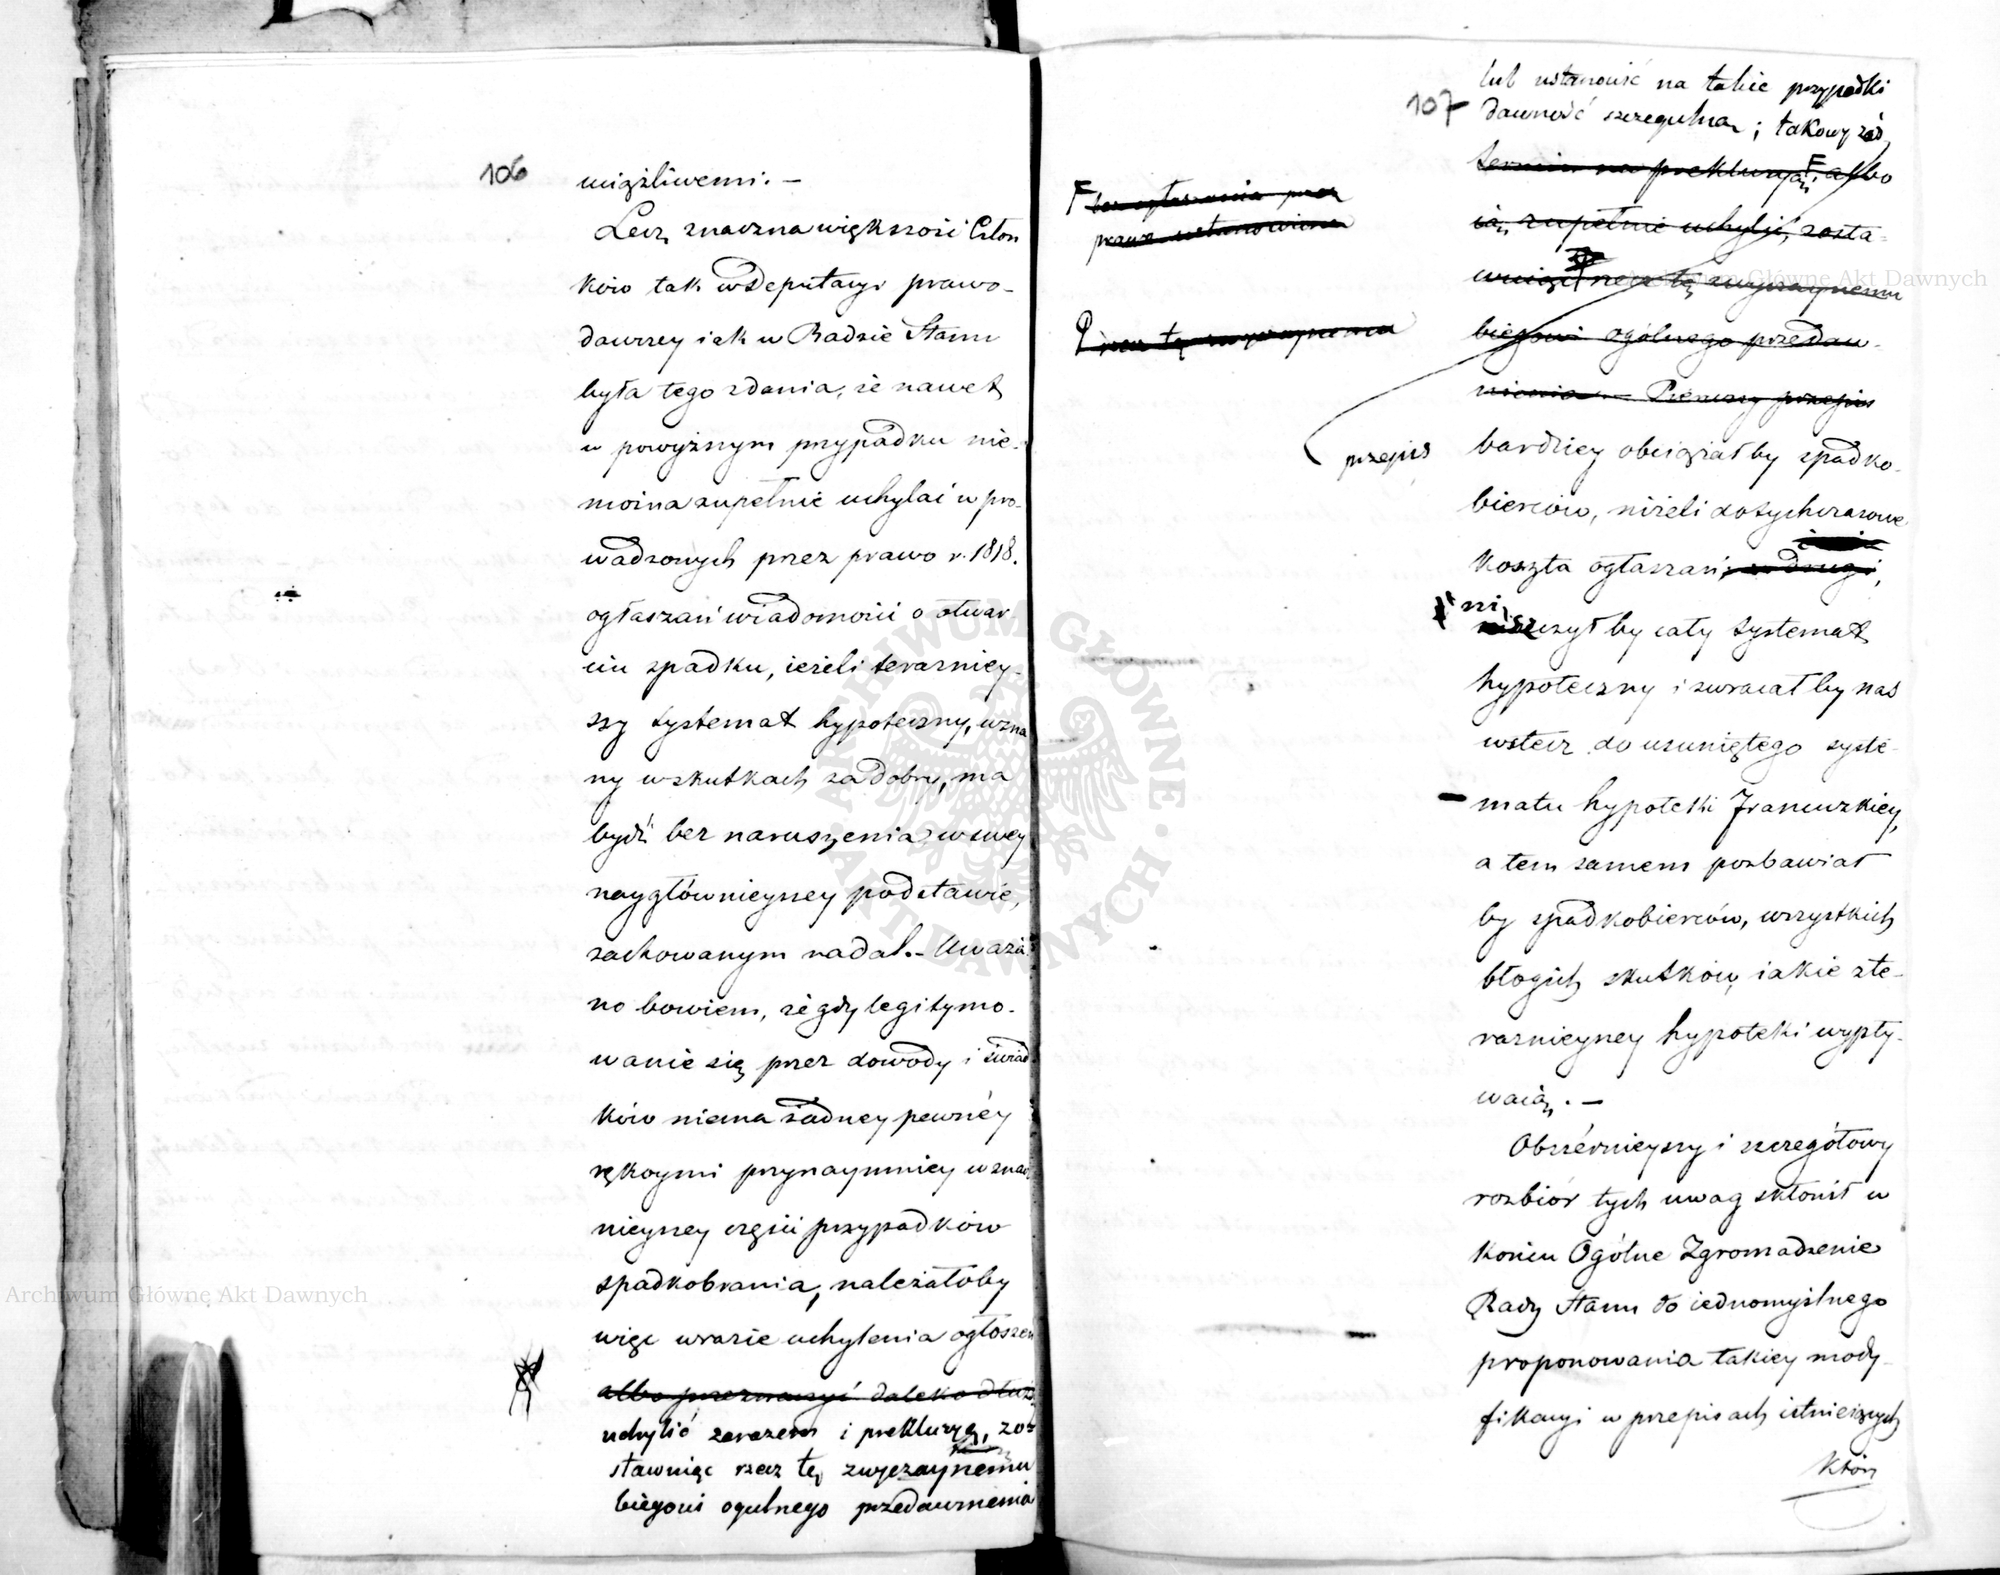 106
uciążliwemi. —
Lecz znaczna większość Człon
ków tak w Deputacyi prawo-
dawczey iak w Radzie Stanu
była tego zdania, że nawet
w powyższym przypadku nie-
można zupełnie uchylać w pro-
wadzonych przez prawo r. 1818.
ogłaszań wiadomości o otwar
ciu spadku, ieżeli teraźniey-
szy systemat hypoteczny, uzna
ny w skutkach za dobry, ma
bydź bez naruszenia w swey
naygłównieyszey podstawie,
zachowanym nadal. — Uważa
no bowiem, że gdy legitymo-
wanie się przez dowody i świad
ków niema żadney pewnéy
rękoymi przynaymniey w znacz
nieyszey części przypadków
spadkobrania, należałoby
więc w razie uchylenia ogłoszeń
albo przeznaczyć daleko dłuż
uchylić zarazem i prekluzyą, zo-
stawuiąc rzecz tę zwyczaynemu
biegowi ogulnego przedawnienia
107
lub ustanowić na takie przypadki
dawność szczegulną; takowy zaś
termin na prekluzyą, F albo
ią, zupełnie uchylić, zosta-
wuiąc rzecz tę zwyczaynemu
biegowi ogólnego przedaw-
nienia — Pierwszy przepis
F bez ogłaszania przez
prawo ustanowione
rzecz tę zwyczaynemu
przepis
bardziey obciążałby spadko-
bierców, niżeli dotychczasowe
koszta ogłaszań, a drugi,
niszczyłby cały systemat
hypoteczny i zwracałby nas
wstecz do usuniętego syste-
matu hypoteki Francuzkiey,
a tem samem pozbawiał
by spadkobierców, wszystkich
błogich skutków iakie z te-
raźnieyszey hypoteki wypły-
waią. —
Obszérnieyszy i szczegółowy
rozbiór tych uwag skłonił w
końcu Ogólne Zgromadzenie
Rady Stanu do iednomyślnego
proponowania takiey mody-
fikacyi w przepisach istnieiących
Któr
Archiwum Główne Akt Dawnych
Archiwum Główne Akt Dawnych
ARCHIWUM GŁÓWNE · AKT DAWNYCH ·